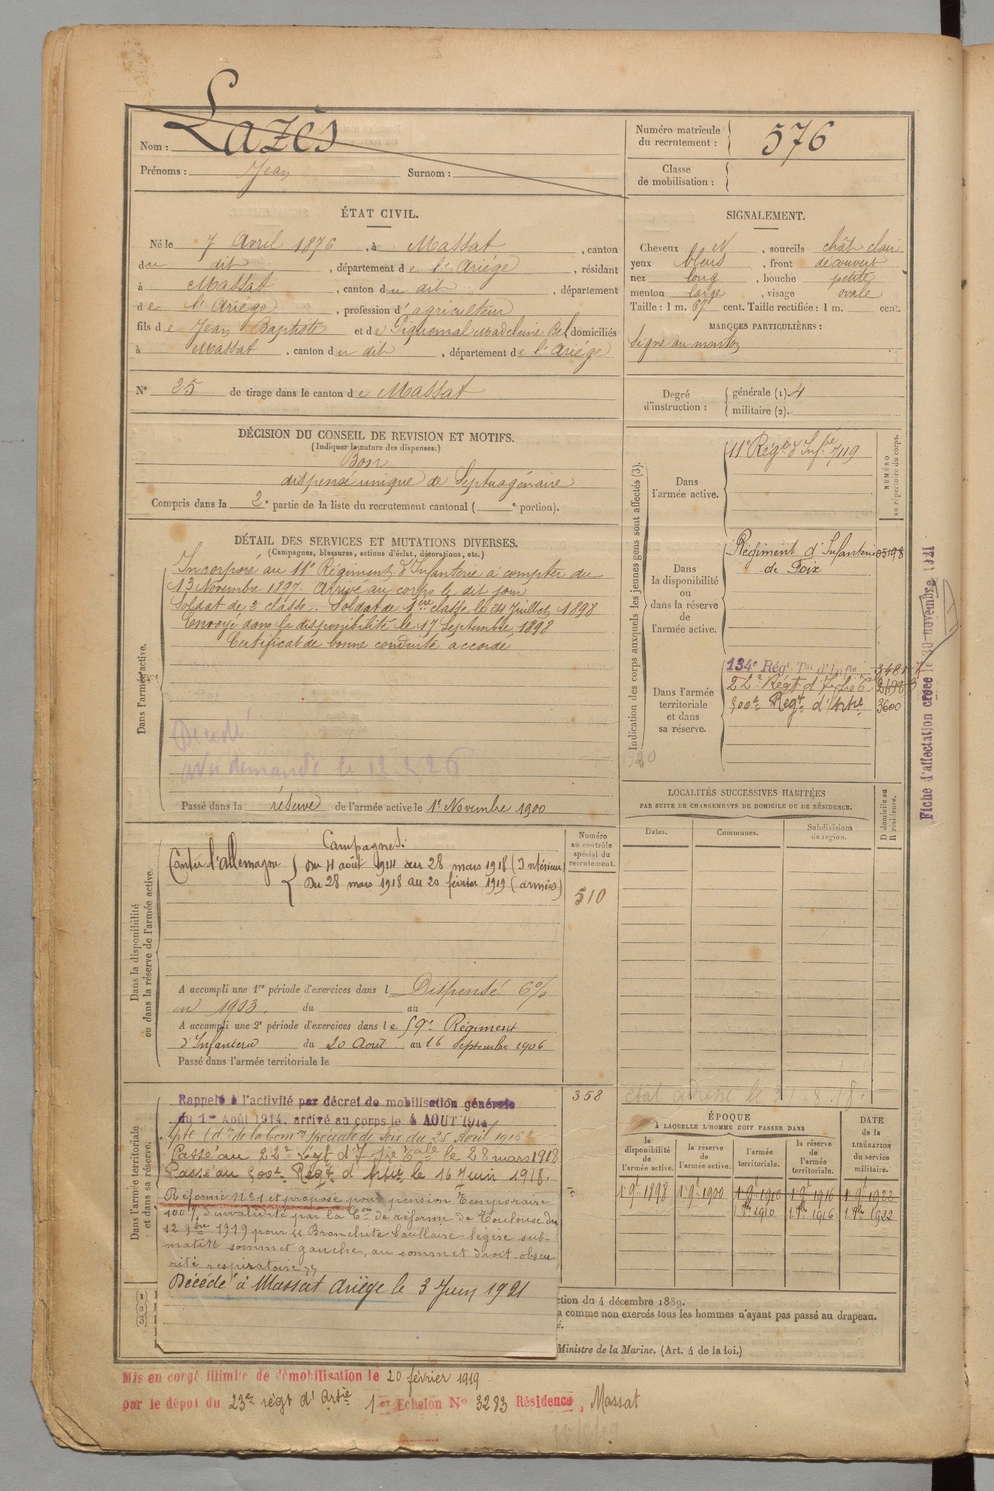 Nom : Lazès
Prénoms : Jean Surnom :
Numéro matricule du recrutement : 576
Classe de mobilisation :
ÉTAT CIVIL.
Né le 7 Avril 1876, à Massat, canton
du dit, département de l'Ariége, résidant
à Massat, canton du dit, département
de l'Ariége, profession d'agriculteur
fils de Jean Baptiste et de Piquemal Madeleine domiciliés
à Massat, canton du dit, département de l'Ariége
SIGNALEMENT.
Cheveux N, sourcils chât clair
yeux bleus, front découvert
nez long, bouche petite
menton large, visage ovale
Taille : 1 m. 67 cent. Taille rectifiée : 1 m. cent.
MARQUES PARTICULIÈRES :
Signe au menton
N° 25 de tirage dans le canton de Massat
Degré d'instruction : générale (1). 4
militaire (2).
DÉCISION DU CONSEIL DE REVISION ET MOTIFS.
(Indiquer la nature des dispenses.)
Bon
dispensé unique de Septuagénaire
Compris dans la 2e partie de la liste du recrutement cantonal ( e portion).
DÉTAIL DES SERVICES ET MUTATIONS DIVERSES.
(Campagnes, blessures, actions d'éclat, décorations, etc.)
Dans l'armée active.
Incorporé au 11e Régiment d'Infanterie à compter du
13 Novembre 1897. Arrivé au corps le dit jour
Soldat de 2e classe. Soldat de 1ère classe le 24 Juillet 1898
Envoyé dans la disponibilité le 17 Septembre 1898
Certificat de bonne conduite accordé
Décédé
Passé dans la réserve de l'armée active le 1er Novembre 1900
Indication des corps auxquels les jeunes gens sont affectés (3).
NUMÉRO au répertoire du corps.
Dans l'armée active.
11e Régt d'Infie 7119
Dans la disponibilité ou dans la réserve de l'armée active.
Régiment d'Infanterie 05198
de Foix
Dans l'armée territoriale et dans sa réserve.
134e Rég. Tal d'Infie
500e Régt d'Artie 3600
Fiche d'affectation créée le 30 novembre 1921
Dans la disponibilité ou dans la réserve de l'armée active.
Campagnes.
Contre l'Allemagne
Du 4 août 1914 au 28 mars 1918 (Intérieur)
Du 28 mars 1918 au 20 février 1919 (armées)
Numéro au contrôle spécial du recrutement.
510
A accompli une 1re période d'exercices dans l Dispensé 6%
en 1903. du au
A accompli une 2e période d'exercices dans le 59e Régiment
d'Infanterie du 20 Août au 16 Septembre 1906
Passé dans l'armée territoriale le
LOCALITÉS SUCCESSIVES HABITÉES
PAR SUITE DE CHANGEMENTS DE DOMICILE OU DE RÉSIDENCE.
Dates. Communes. Subdivisions de région. D domicile ou R résidence.
Dans l'armée territoriale et dans sa réserve.
358
Rappelé à l'activité par décret de mobilisation générale
du 1er Août 1914, arrivé au corps le 4 AOUT 1914
Apte (don de la Comm spéciale de Foix du 25 Avril 1915)
Passé au 22e Régt d'Infie Tale le 28 mars 1918
Passé au 500e Régt d'Artie le 16 Juin 1918.
Réformé N° 1 et proposé pour pension temporaire
100% d'invalidité par la Con de réforme de Toulouse du
12 9bre 1919 pour "Bronchite bacillaire légère sub-
matité sommet gauche, au sommet droit obscu-
rité respiratoire"
Décédé à Massat Ariége le 3 Juin 1921
ÉPOQUE
À LAQUELLE L'HOMME DOIT PASSER DANS
la disponibilité de l'armée active. la réserve de l'armée active. l'armée territoriale. la réserve de l'armée territoriale. DATE de la LIBÉRATION du service militaire.
1 9bre 1898 1 9bre 1900 1 9bre 1910 1 9bre 1916 1 9bre 1922
1910 1916 1922
ction du 4 décembre 1889.
s comme non exercés tous les hommes n'ayant pas passé au drapeau.
é.
Ministre de la Marine. (Art. 4 de la loi.)
Mis en congé illimité de démobilisation le 20 février 1919
par le dépôt du 23e régt d'Artie 1er Echelon N° 3283 Résidence, Massat